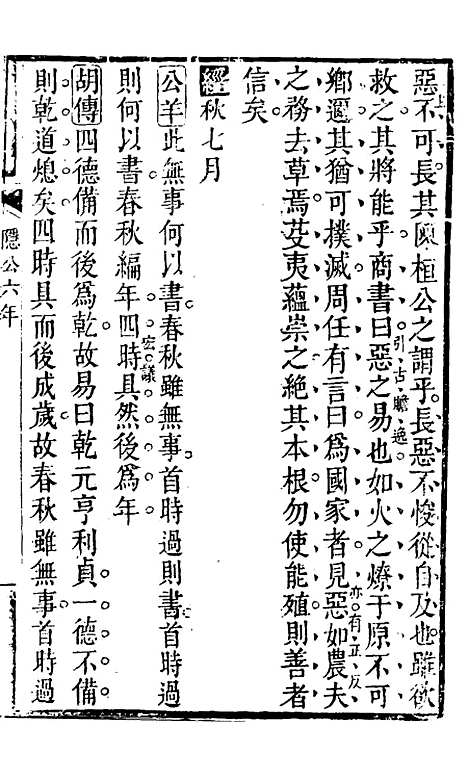 惡不可長其陳桓公之謂乎長惡不悛從自及也雖欲
救之其將能乎商書曰惡之易也如火之燎于原不可
引古贍逸
鄉邇其猶可撲滅周任有言曰爲國家者見惡如農夫
亦有正反
之務去草焉芟夷蘊崇之絕其本根勿使能殖則善者
信矣
經秋七月
公羊此無事何以書春秋雖無事首時過則書首時過
則何以書春秋編年四時具然後爲年
宏議
胡傳四德備而後爲乾故易曰乾元亨利貞一德不備
則乾道熄矣四時具而後成歲故春秋雖無事首時過
隱公六年